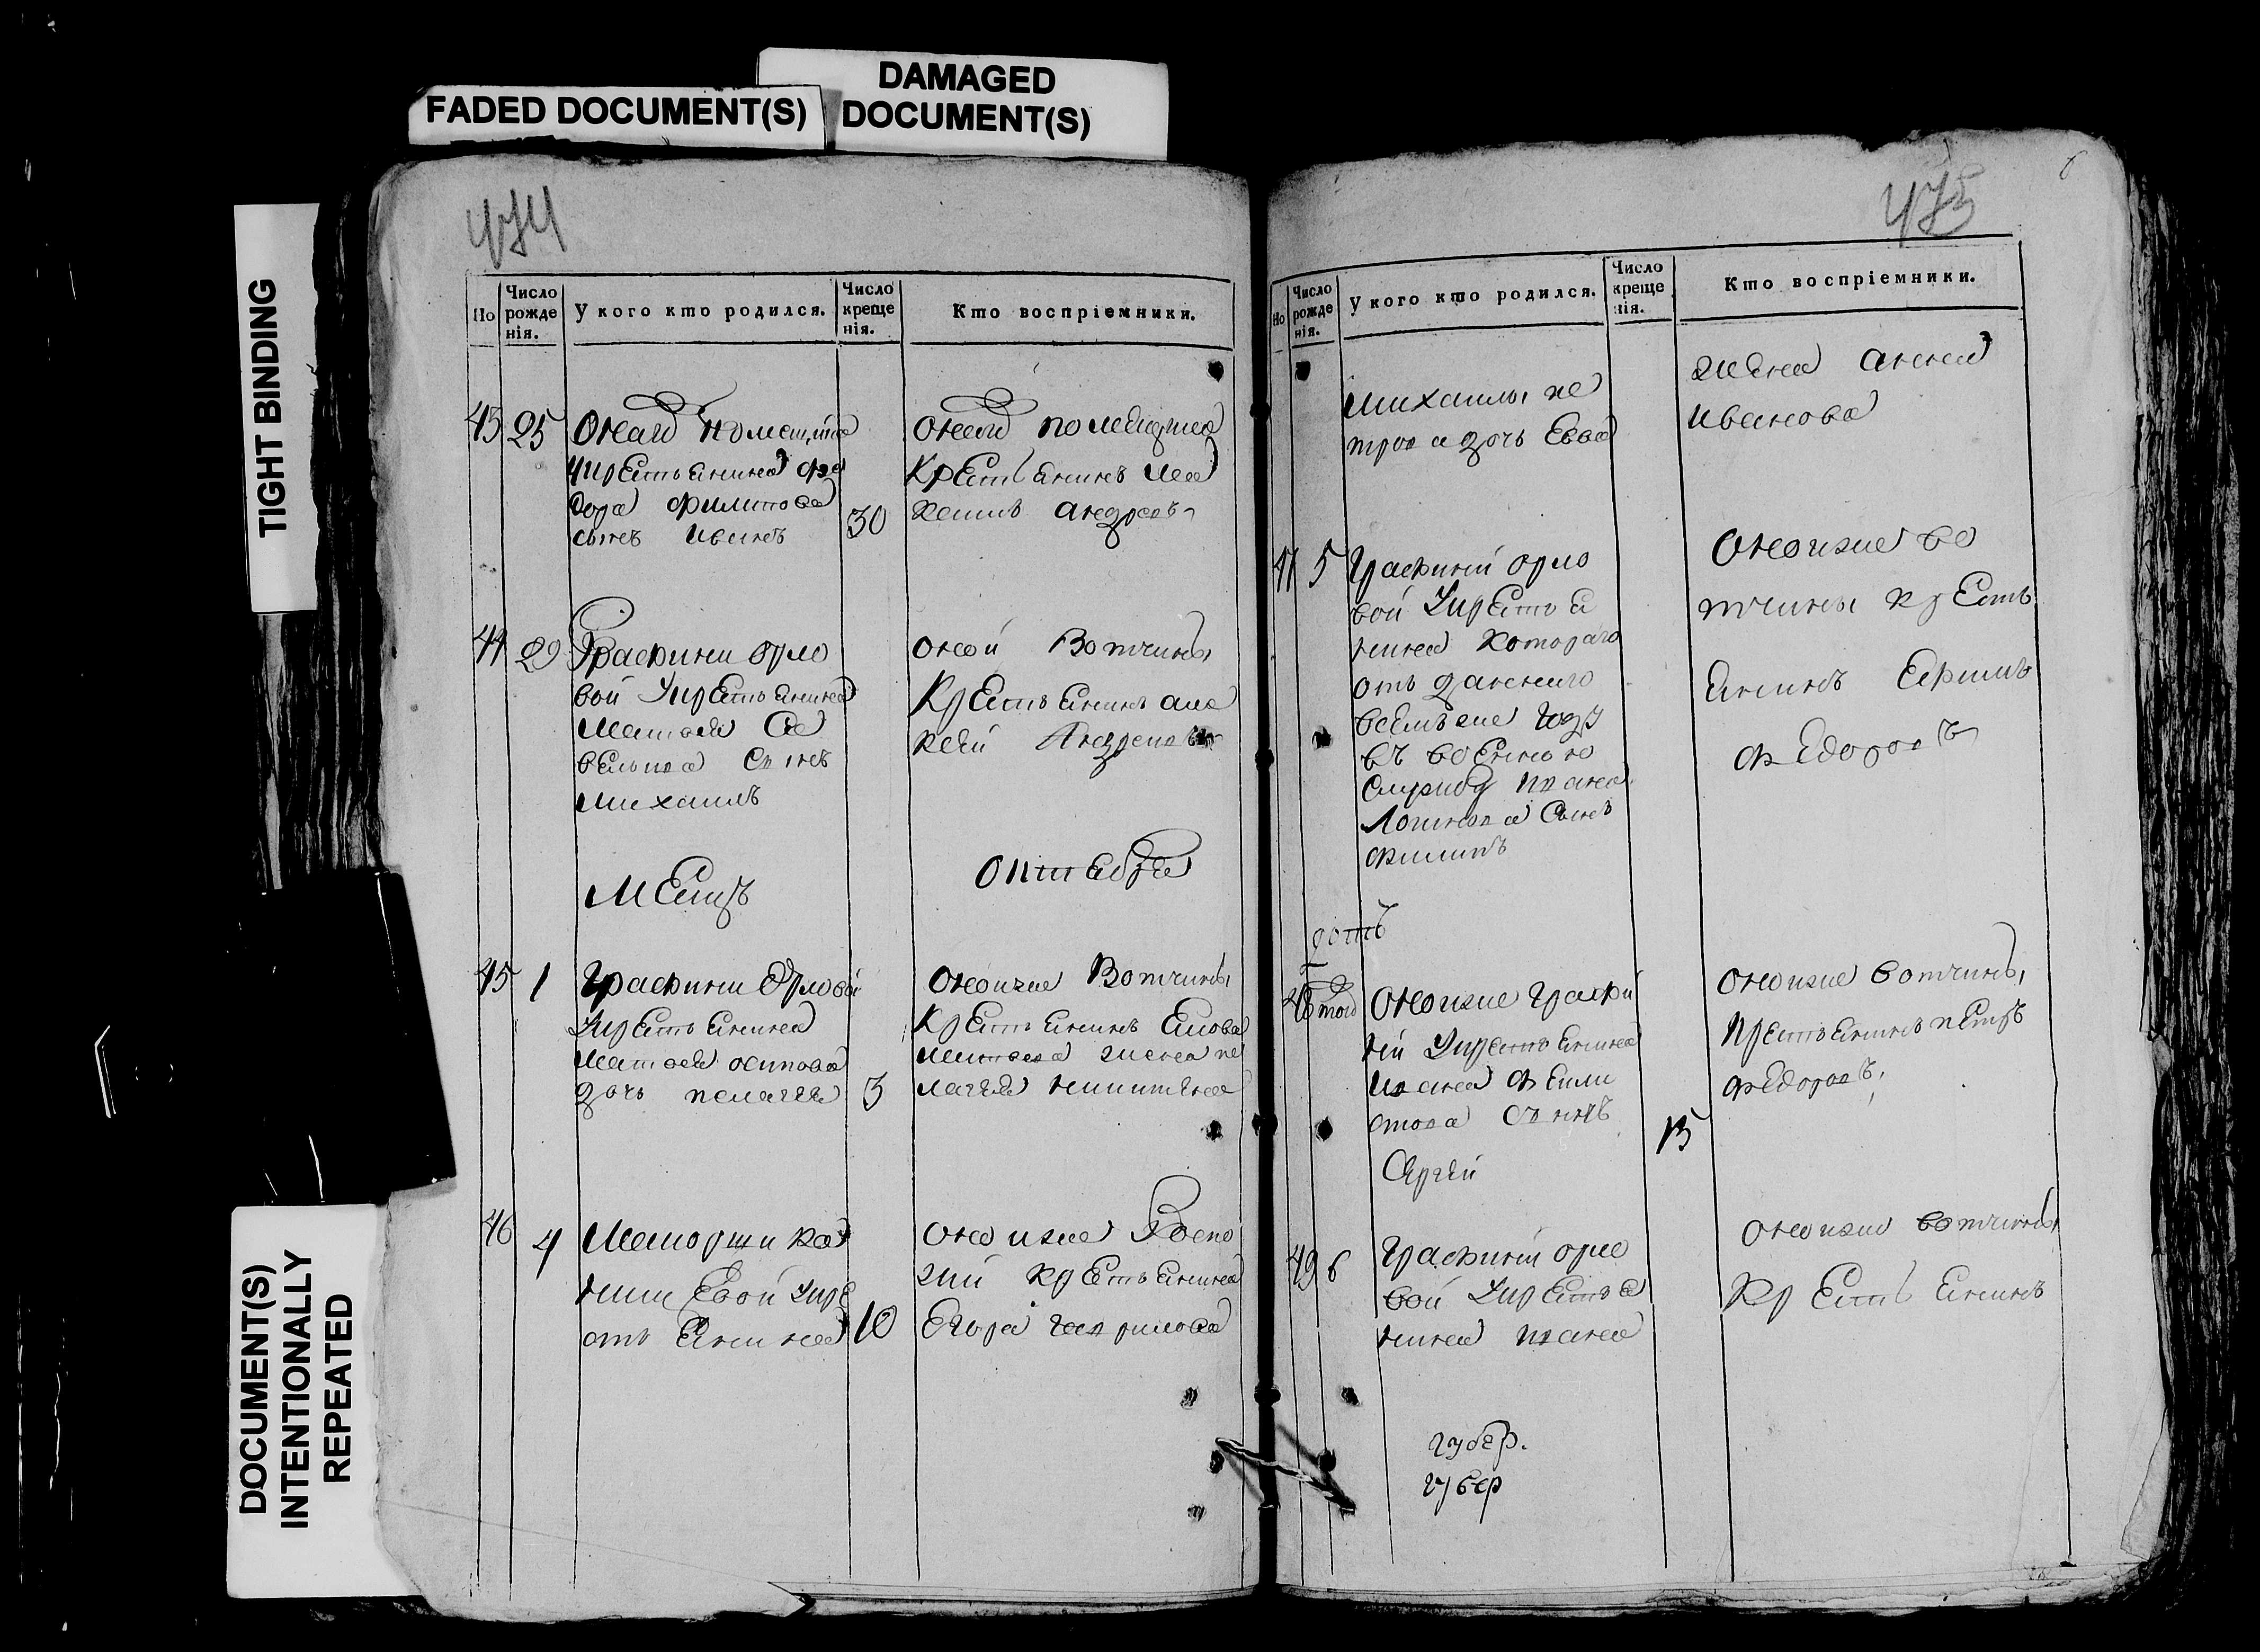 FADED DOCUMENT(S)
DAMAGED
DOCUMENT(S)
TIGHT BINDING
DOCUMENT(S)
INTENTIONALLY
REPEATED
474
Но
Число рожденія.
У кого кто родился.
Число крещенія.
Кто воспріемники.
43 25
Онаго помещика
укрестьенина Фе
дора Филипова
сынъ Иванъ
30
Онаго помещика
Крестьенинъ
Андреевъ
44 29
Графини Орло
вой Укрестьенина
Матвея Са
вельева сынъ
Михаилъ
оной Вотчины
Крестьенинъ Але
ксей Андреевъ
Месецъ
Октебря
45 1
Графини Орловой
Укрестьенина
Матвея Осипова
дочь Пелагея
3
Оноиже Вотчины
Крестьенинъ
жена Пе
лагея Никитина
46 4
Маиорши Ка
Укре
стьенина
10
Оноиже
крестьенина
Егора Гаврилова
475
6
Но
Число рожденія.
У кого кто родился.
Число крещенія.
Кто воспріемники.
Михаилы Пе
трова дочь Евва
жена Анна
Иванова
47 5
Графиней Орло
вой Укрестье
нина котораго
отъ даннаго
году
въ военную
службу Ивана
Логинова сынъ
Филипъ
Оноиже во
тчины кресть
енинъ Ефимъ
Федоровъ
48 того
Оноиже Графи
ней Укрестьенина
Ивана Фили
пова сынъ
Сергей
13
Оноиже вотчины
Крестьенинъ Петръ
Федоровъ
49 6
Графиней Орло
вой Укрестье
нина Ивана
Оноиже вотчины
Крестьенинъ
губер.
губер